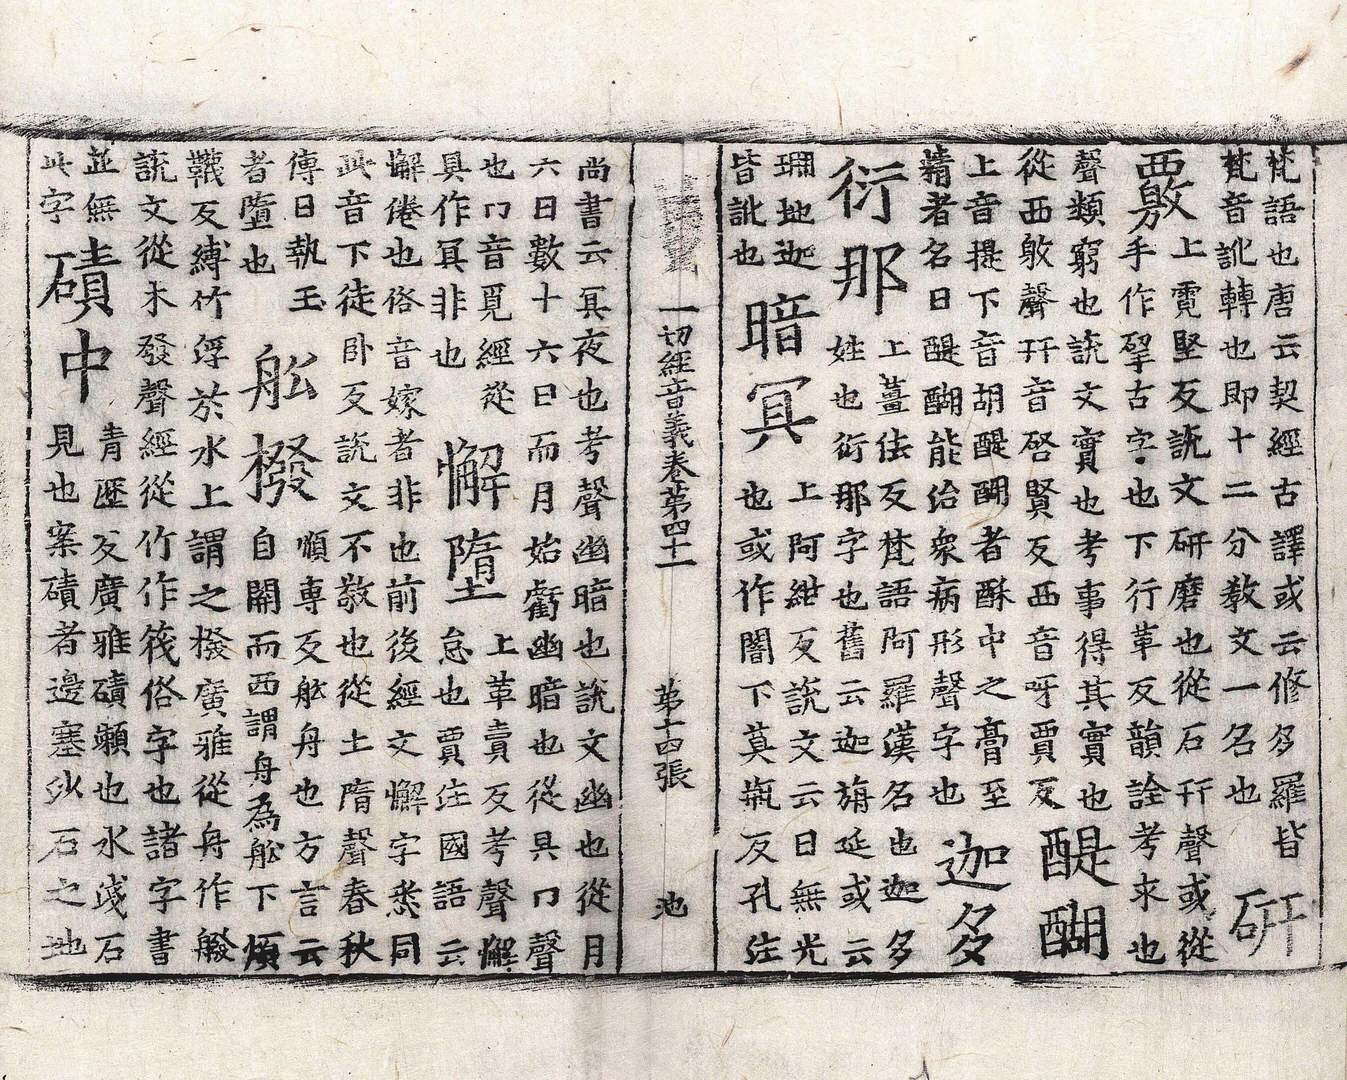 梵語也唐云契經古譯或云修多羅皆
梵音訛轉也即十二分教文一名也
研
覈上霓堅反說文研磨也從石幵聲或從
手作揅古字也下行革反韻詮考求也
聲類窮也說文實也考事得其實也
從襾敫聲幵音啓賢反襾音呀賈反
醍醐
上音提下音胡醍醐者酥中之膏至
精者名曰醍醐能治衆病形聲字也
迦多
衍那
上薑佉反梵語阿羅漢名也迦多
姓也衍那字也舊云迦旃延或云
珊地迦
皆訛也
暗冥
上阿紺反說文云日無光
也或作闇下莫瓶反孔注
一切經音義卷第四十一 第十四張 池
尚書云冥夜也考聲幽暗也說文幽也從月
六日數十六日而月始虧幽暗也從具冂聲
也冂音覓經從
具作冥非也
懈墮
上革賣反考聲懈
怠也賈注國語云
懈倦也俗音嫁者非也前後經文懈字悉同
此音下徒卧反說文不敬也從土隋聲春秋
傳曰執玉
者墮也
舩撥
順專反舩舟也方言云
自關而西謂舟為舩下煩
韈反縛竹浮於水上謂之撥廣雅從舟作艐
說文從木發聲經從竹作筏俗字也諸字書
並無
此字
磧中
青歷反廣雅磧瀨也水淺石
見也案磧者邊塞沙石之地